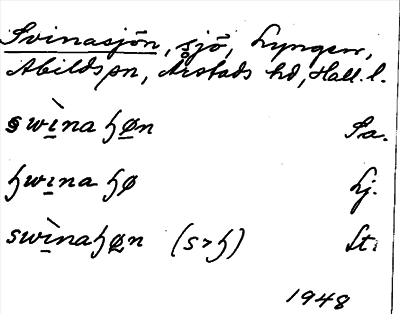 Svinasjön, sjö, Lyngen,
Abilds sn, Årstads hd, Hall. l.
swìna ɧøn Sa.
ɧwina ɧø Lj.
swìnaɧøn (s>ɧ) St.
1948